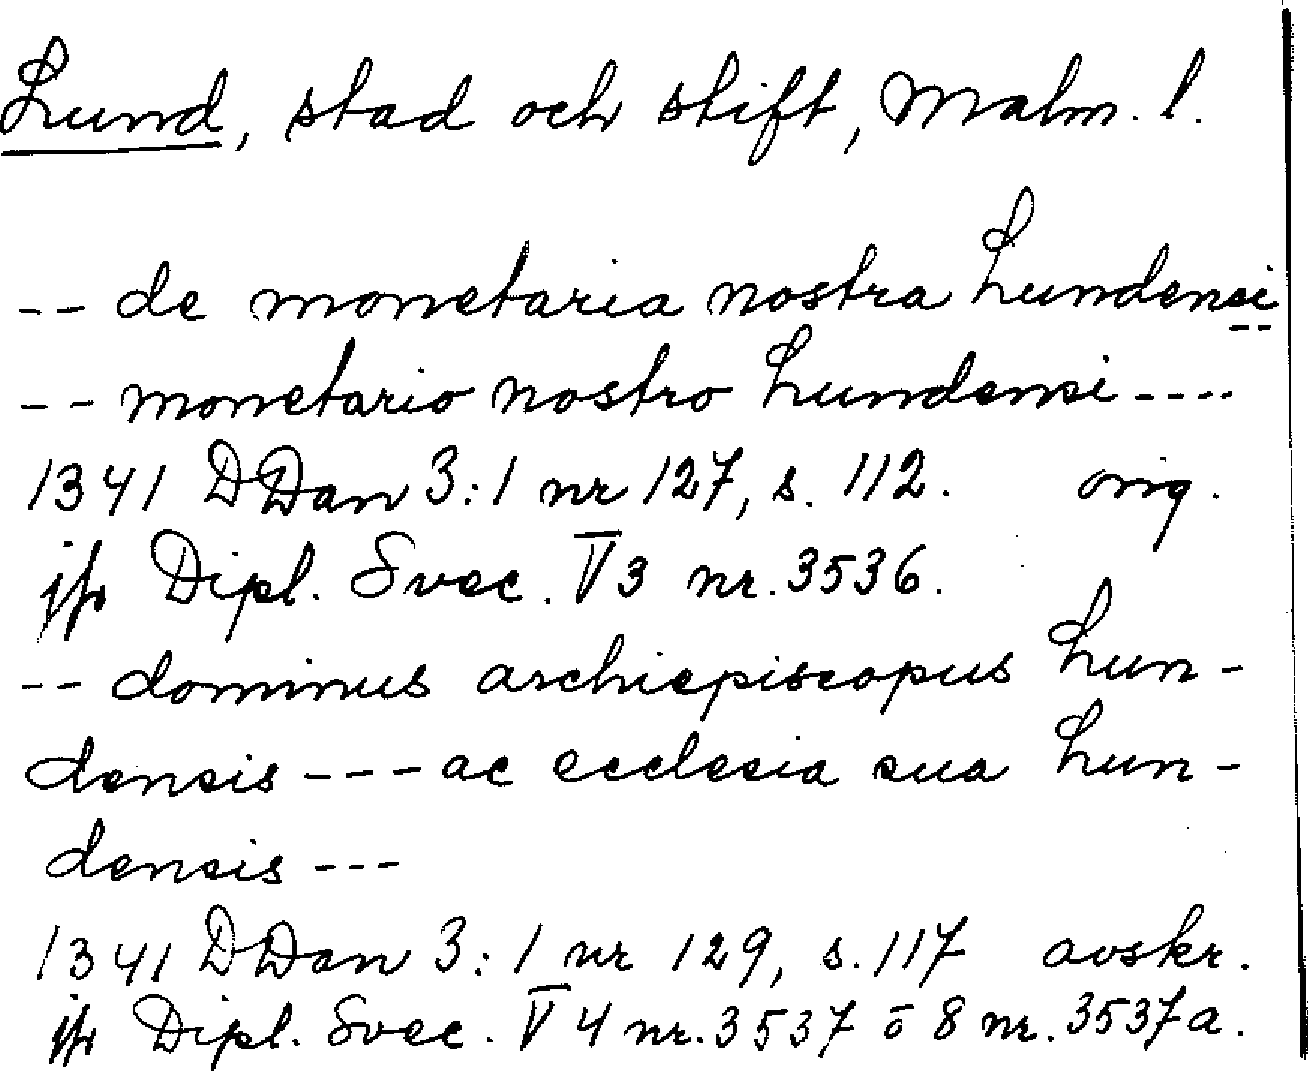 Lund, stad och stift, Malm. l.
-- de monetaria nostra Lundensi
-- monetario nostro Lundensi ----
1341 DDan 3:1 nr 127, s. 112. orig.
jfr Dipl. Svec. V 3 nr. 3536.
-- dominus archiepiscopus Lun-
densis --- ac ecclesia sua Lun-
densis ---
1341 DDan 3:1 nr 129, s. 117 avskr.
jfr Dipl. Svec. V 4 nr. 3537 o 8 nr. 3537a.